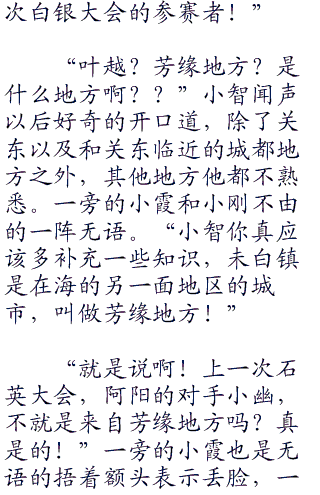 次白银大会的参赛者！”
“叶越？芳缘地方？是
什么地方啊？？”小智闻声
以后好奇的开口道，除了关
东以及和关东临近的城都地
方之外，其他地方他都不熟
悉。一旁的小霞和小刚不由
的一阵无语。“小智你真应
该多补充一些知识，未白镇
是在海的另一面地区的城
市，叫做芳缘地方！”
“就是说啊！上一次石
英大会，阿阳的对手小幽，
不就是来自芳缘地方吗？真
是的！”一旁的小霞也是无
语的捂着额头表示丢脸，一